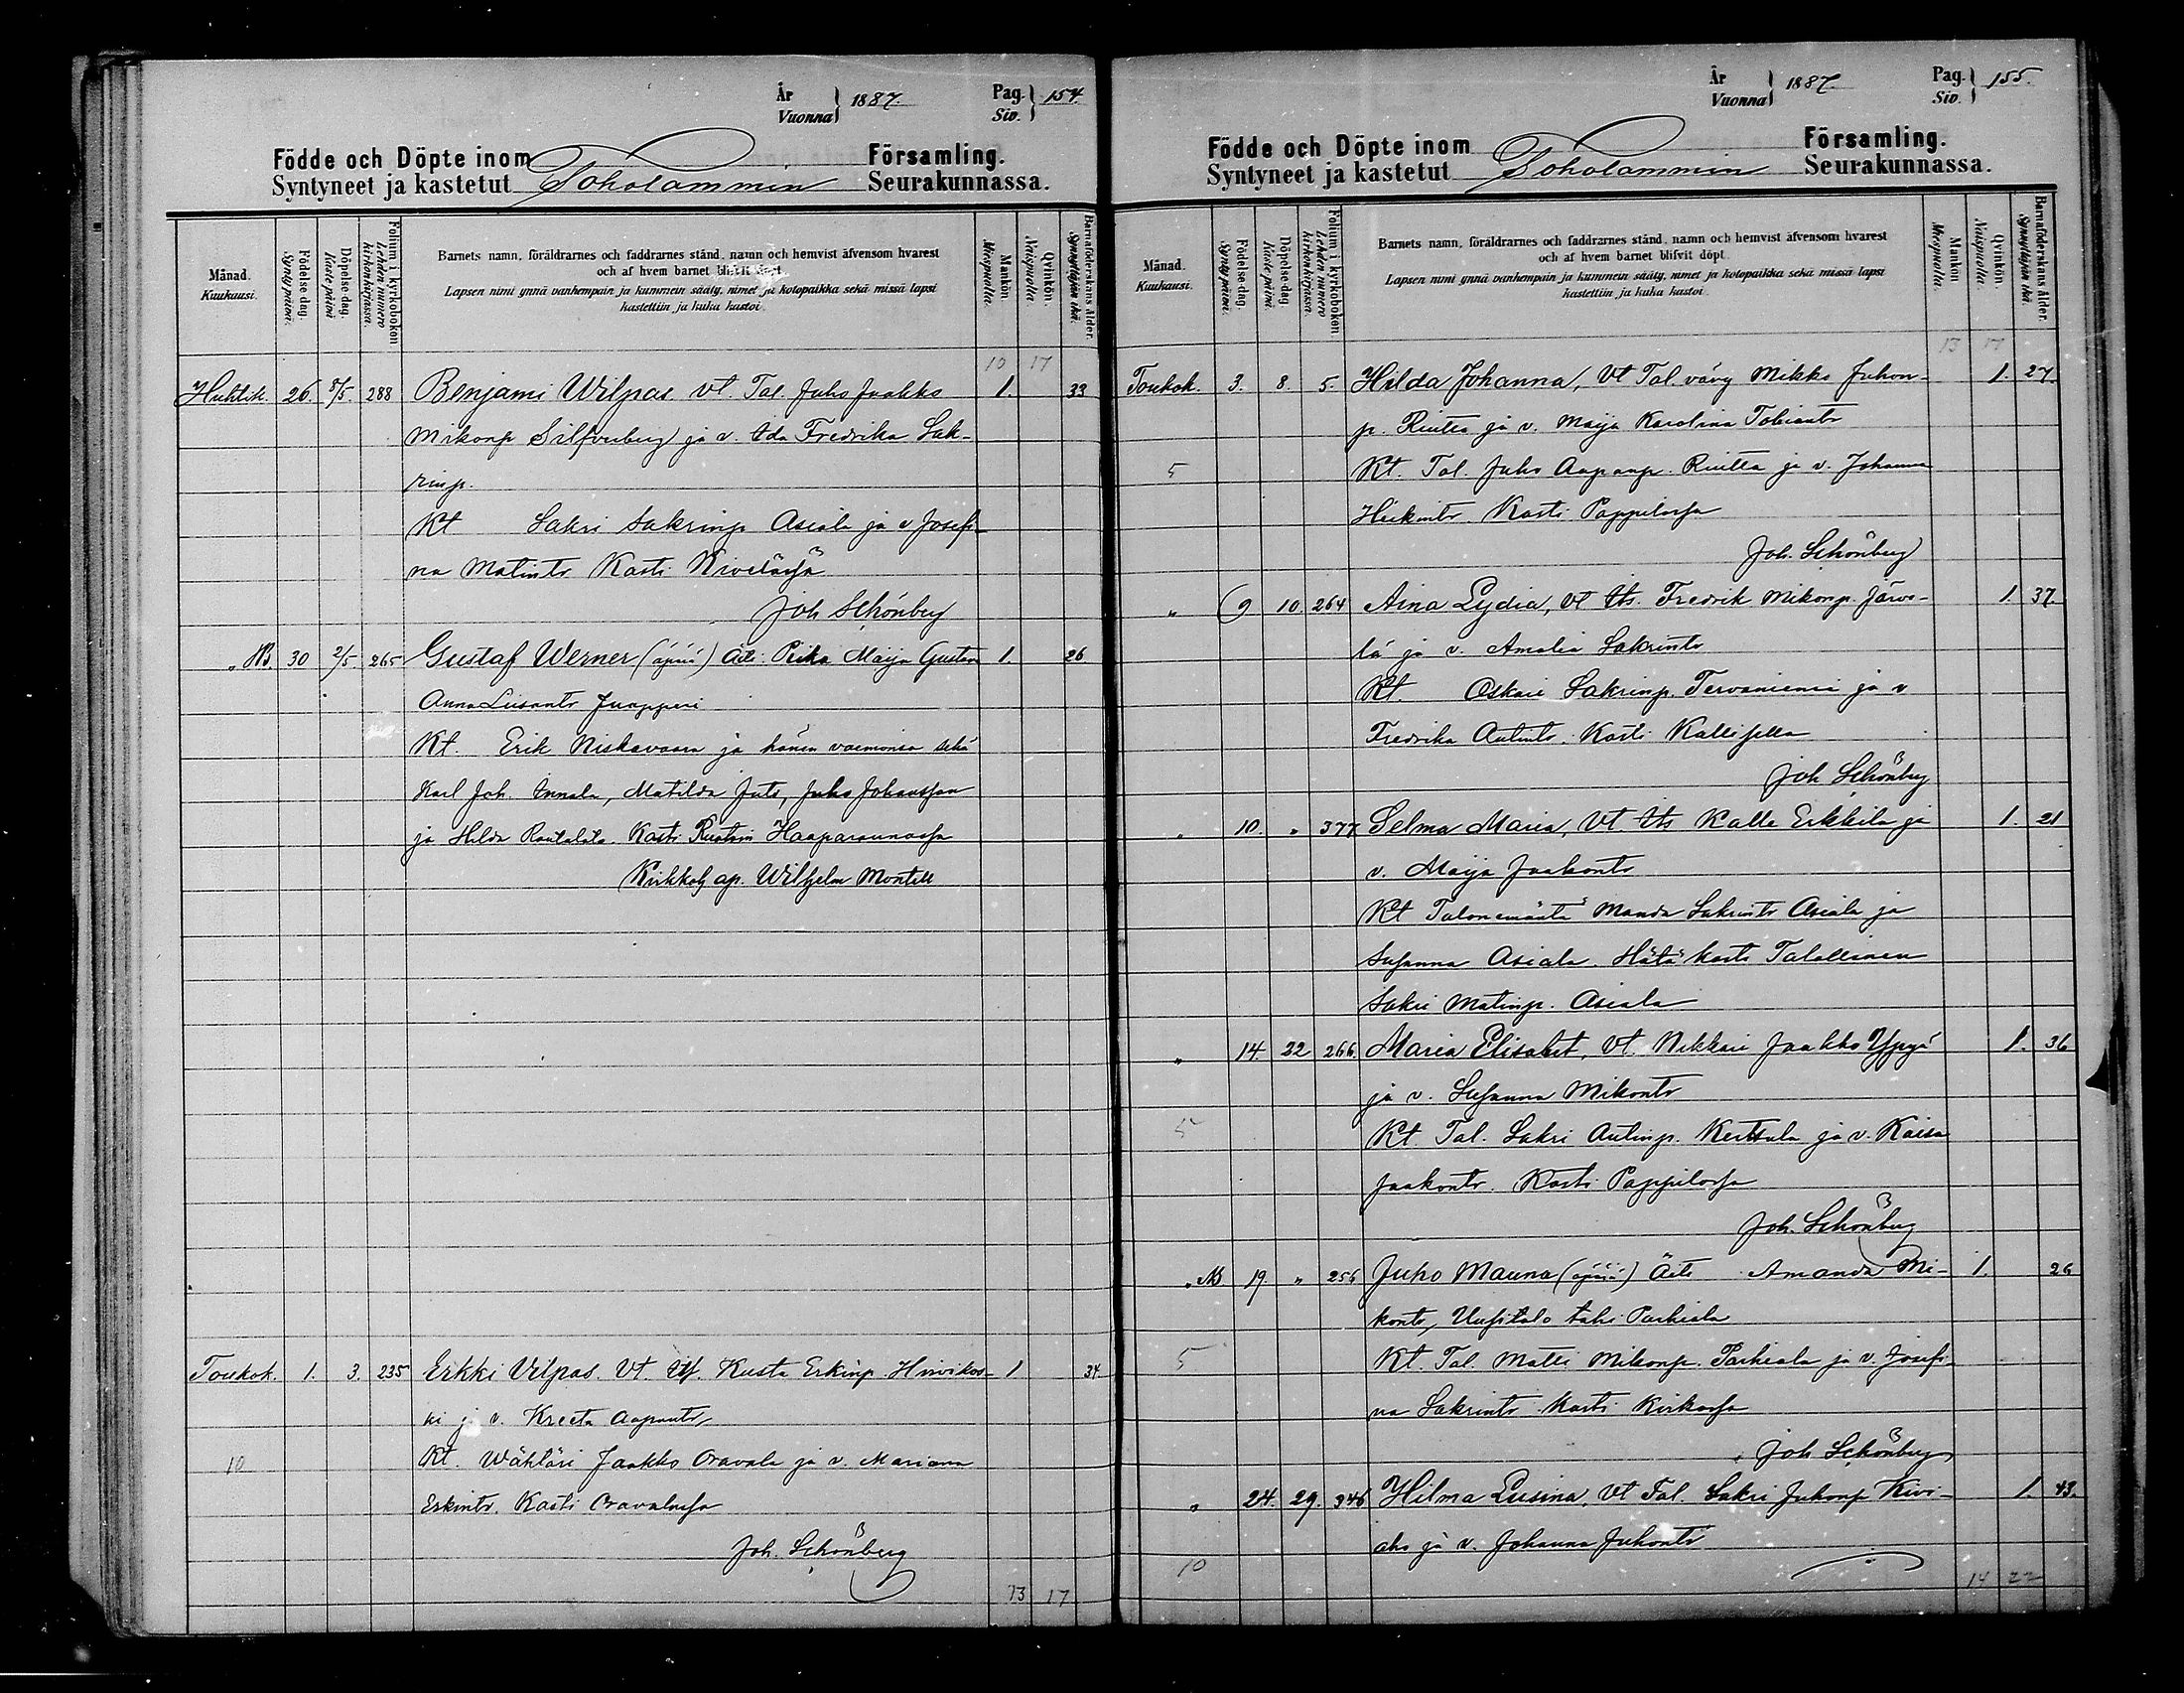 År
Vuonna } 1887.
Pag.
Siv. } 154.
Födde och Döpte inom Församling.
Syntyneet ja kastetut Toholammin Seurakunnassa.
Månad.
Kuukausi.
Födelse-dag.
Synty päivä.
Döpelse-dag.
Kaste päivä
Folium i kyrkoboken
Lehden numero kirkonkirjassa.
Barnets namn, föräldrarnes och faddrarnes stånd, namn och hemvist äfvensom hvarest
och af hvem barnet blifvit döpt.
Lapsen nimi ynnä vanhempain ja kummein sääty, nimet ja kotopaikka sekä missä lapsi
kastettiin ja kuka kastoi.
Mankön
Miespuolta.
Qvinkön.
Naispuolta
Barnaföderskans ålder.
Synnyttäjän ikä.
10 17
Huhtik. 26. 8/5. 288 Benjami Wilpas. Vt. Tal. Juho Jaakko 1. 33
Mikonp Silfverberg ja v. Ida Fredrika Sak-
rinp.
Kt Sakri Sakrinp Asiala ja v Josefi-
na Matintr Kasti Kivelässä
Joh Schönberg
" NB. 30 2/5 265 Gustaf Werner (äpärä) Äiti: Piika Maija Gustava 1. 26
Anna Liisantr Juapperi
Kt. Erik Niskavaara ja hänen vaimonsa sekä
Karl Joh. Innala, Matilda Juts, Juho Johansson
ja Hilda Rautalato. Kasti Ruotsin Haaparannassa
Kirkkoh ap. Wilhelm Montell
Toukok. 1. 3. 235 Erkki Vilpas. Vt. Its. Kusta Erkinp. Hirvikos- 1 34.
ki ja v. Kreeta Aapontr
10 Kt. Wähtäri Jaakko Oravala ja v. Mariana
Erkintr. Kasti Oravalassa
Joh. Schönberg
13 17
År
Vuonna } 1887.
Pag.
Siv. } 155.
Födde och Döpte inom Församling.
Syntyneet ja kastetut Toholammin Seurakunnassa.
Månad.
Kuukausi.
Födelse-dag.
Synty päivä.
Döpelse-dag
Kaste päivä.
Folium i kyrkoboken.
Lehden numero kirkonkirjassa.
Barnets namn, föräldrarnes och faddrarnes stånd, namn och hemvist äfvensom hvarest
och af hvem barnet blifvit döpt.
Lapsen nimi ynnä vanhempain ja kummein sääty, nimet ja kotopaikka sekä missä lapsi
kastettiin ja kuka kastoi.
Mankön
Miespuolta.
Qvinkön.
Naispuolta.
Barnaföderskans ålder.
Synnyttäjän ikä.
13 17
Toukok. 3. 8. 5. Hilda Johanna, Vt Tal. vävy Mikko Juhon- 1. 27.
p. Riutta ja v. Maija Karolina Tobiantr
5 Kt. Tal. Juho Aaponp. Riutta ja v. Johanna
Heikintr. Kasti Pappilassa
Joh. Schönberg
" 9 10 264 Aina Lydia, Vt Its. Fredrik Mikonp. Järve- 1. 37.
lä ja v. Amalia Sakrintr
Kt. Oskari Sakrinp. Tervaniemi ja v
Fredrika Antintr. Kasti Kallisella
Joh Schönberg
" 10. " 377 Selma Maria, Vt Its Kalle Erkkila ja 1. 21
v. Maija Jaakontr
Kt Talonemäntä Manda Sakrintr Asiala ja
Susanna Asiala. Hätä kasti Talollinen
Sakri Matinp. Asiala
" 14. 22 266. Maria Elisabet, Vt. Nikkari Jaakko Yppyä 1. 36
ja v. Susanna Mikontr
5 Kt Tal. Sakri Antinp. Kerttula ja v. Kaisa
Jaakontr. Kasti Pappilassa
Joh. Schönberg
" NB 19. " 256 Juho Mauna (äpärä) Äiti Amanda Mi- 1. 26
kontr, Uusitalo tahi Parhiala
5 Kt. Tal. Matti Mikonp. Parhiala ja v. Josefi-
na Sakrintr Kasti Kirkossa
Joh Schönberg
" 24. 29. 346 Hilma Lusina, Vt Tal. Sakri Juhonp Kivi- 1. 43.
aho ja v. Johanna Juhontr
10
14 22